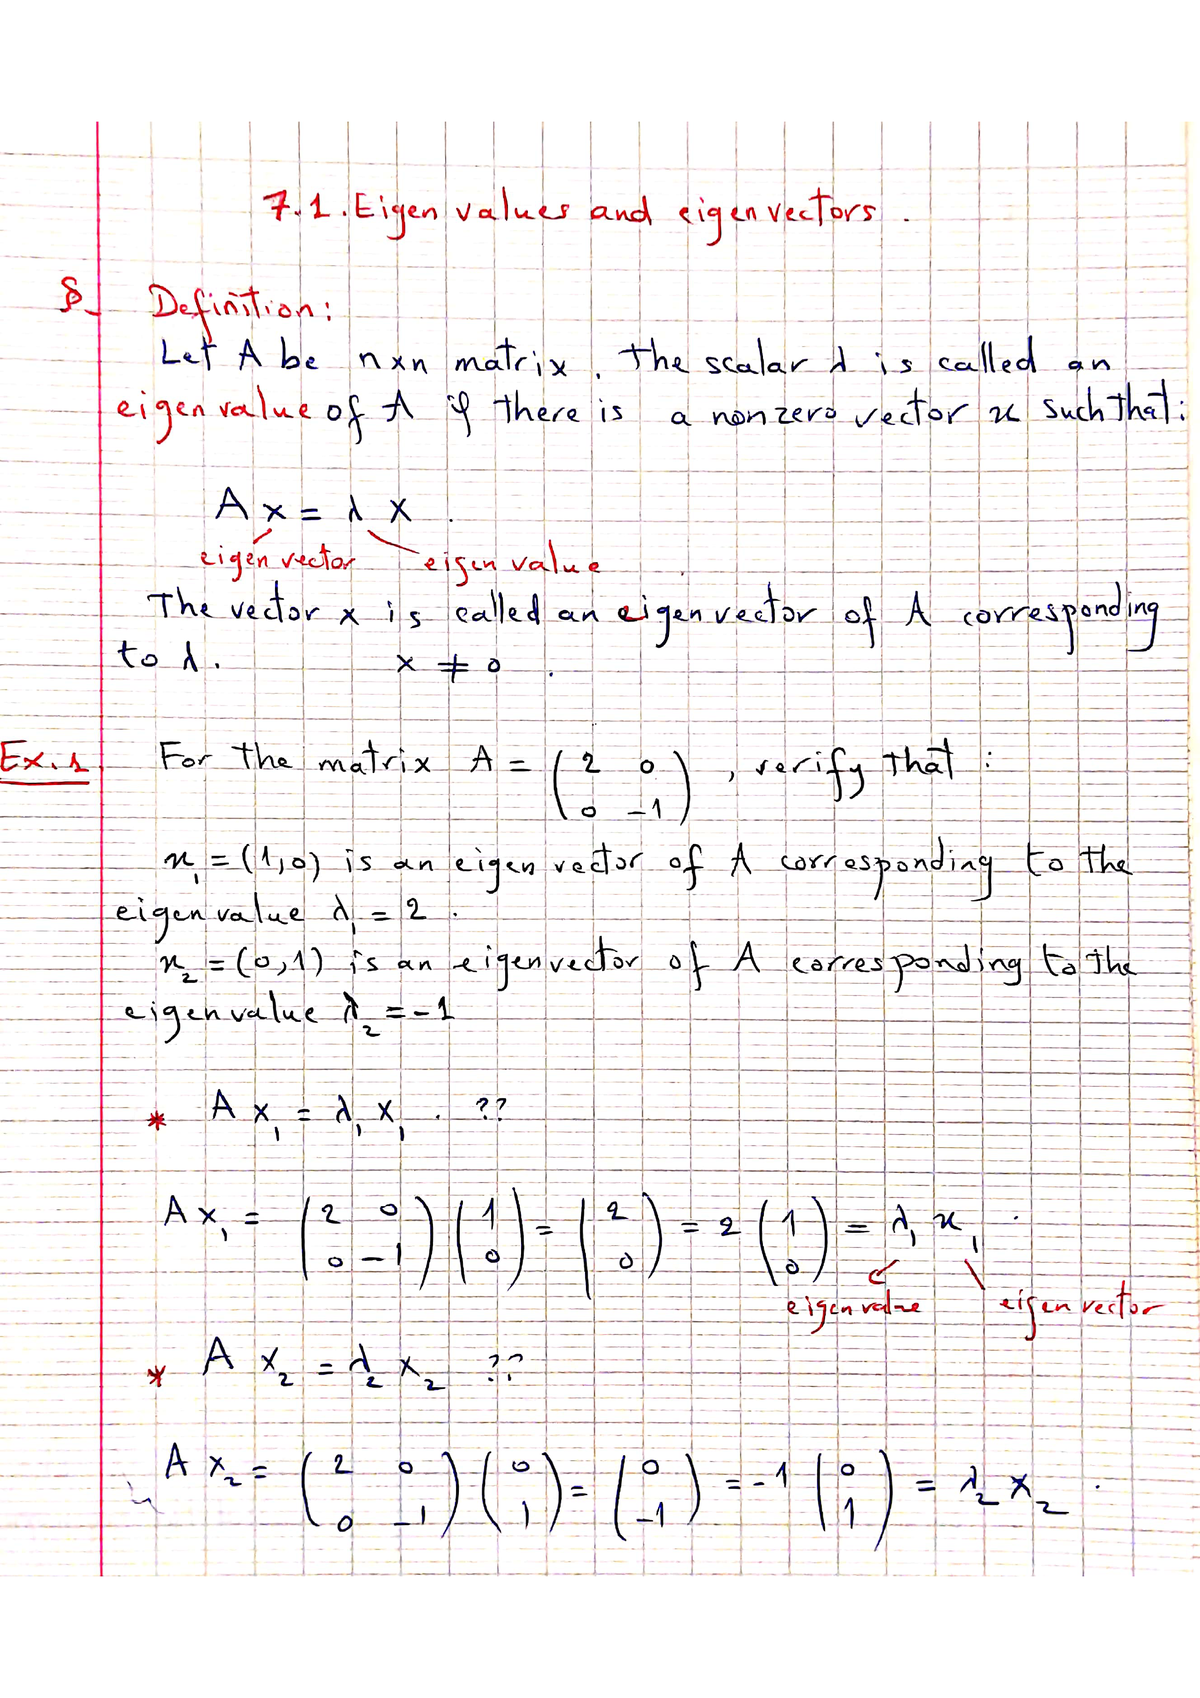 7.1. Eigen values and eigenvectors.
§ Definition:
Let A be nxn matrix. The scalar λ is called an
eigen value of A if there is a nonzero vector x such that:
A x = λ x.
eigen vector eigen value
The vector x is called an eigenvector of A corresponding
to λ. x ≠ 0.
Ex. 1 For the matrix A = ( 2 0 ; 0 -1 ), verify that :
x₁ = (1,0) is an eigen vector of A corresponding to the
eigen value λ₁ = 2.
x₂ = (0,1) is an eigenvector of A corresponding to the
eigenvalue λ₂ = -1
* A x₁ = λ₁ x₁. ??
A x₁ = ( 2 0 ; 0 -1 ) ( 1 ; 0 ) = ( 2 ; 0 ) = 2 ( 1 ; 0 ) = λ₁ x₁.
eigen value eigen vector
* A x₂ = λ₂ x₂ ??
A x₂ = ( 2 0 ; 0 -1 ) ( 0 ; 1 ) = ( 0 ; -1 ) = -1 ( 0 ; 1 ) = λ₂ x₂.